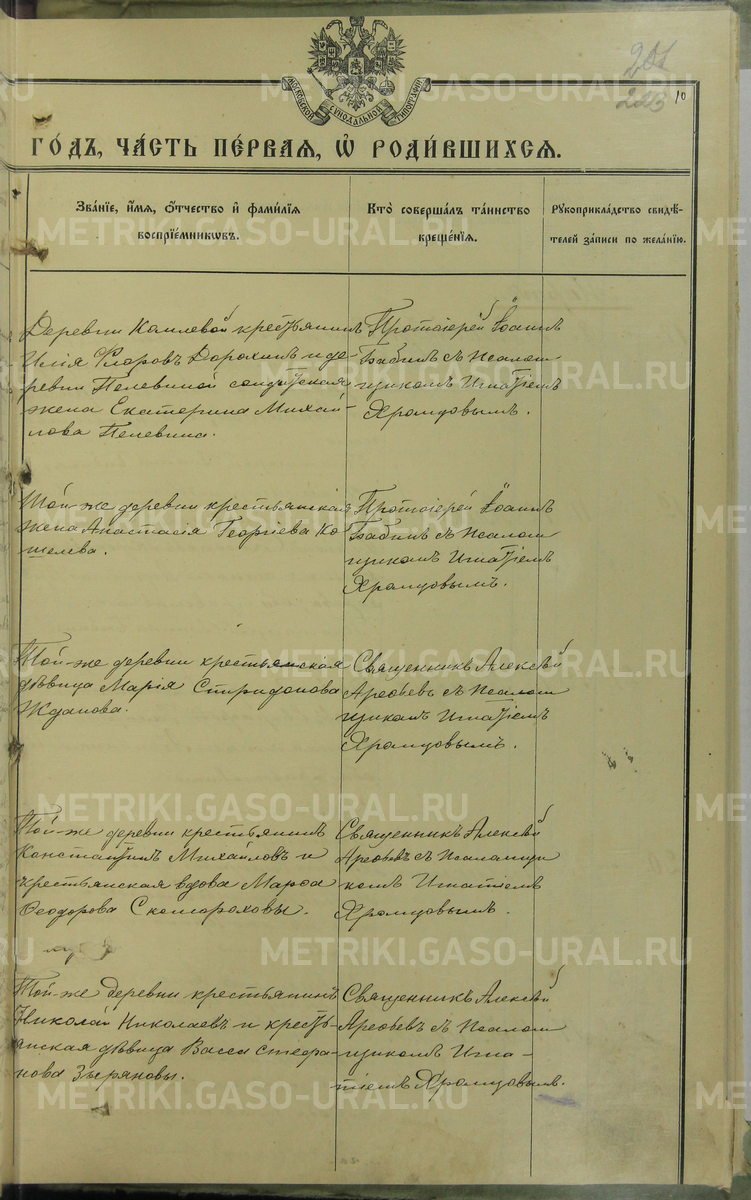 201
213
10
МОСКОВСКОЙ СѴНОДАЛЬНОЙ ТИПОГРАФІИ
ГО́ДЪ, ЧА́СТЬ ПЕ́РВАЯ, Ѡ҆ РОДИ́ВШИХСЯ.
Зва́нїе, и҆́мя, ѻ҆́тчество и҆ фами́лїя
воспрїе́мникѡвъ.
Кто̀ соверша́лъ та́инство
креще́нїя.
Рꙋкоприкла́дство свидѣ́-
телей за́писи по жела́нїю.
Деревни Камлевой крестьянинъ
Илія Флоровъ Дорохинъ и де-
ревни Пелевиной солдатская
жена Екатерина Михай-
лова Пелевина.
Протоіерей Іоаннъ
Бабинъ съ псалом-
щикомъ Игнатіемъ
Храмцовымъ.
Той-же деревни крестьянская
жена Анастасія Георгіева Ко-
шелева.
Протоіерей Іоаннъ
Бабинъ съ псалом-
щикомъ Игнатіемъ
Храмцовымъ.
Той-же деревни крестьянская
дѣвица Марія Спиридонова
Жданова.
Священникъ Алексѣй
Арефьевъ съ псалом-
щикомъ Игнатіемъ
Храмцовымъ.
Той-же деревни крестьянинъ
Константинъ Михайловъ и
крестьянская вдова Марѳа
Ѳеодорова Скомороховы.
Священникъ Алексѣй
Арефьевъ съ псаломщи-
комъ Игнатіемъ
Храмцовымъ.
Той-же деревни крестьянинъ
Николай Николаевъ и кресть-
янская дѣвица Васса Стефа-
нова Зыряновы.
Священникъ Алексѣй
Арефьевъ съ псалом-
щикомъ Игна-
тіемъ Храмцовымъ.
METRIKI.GASO-URAL.RU